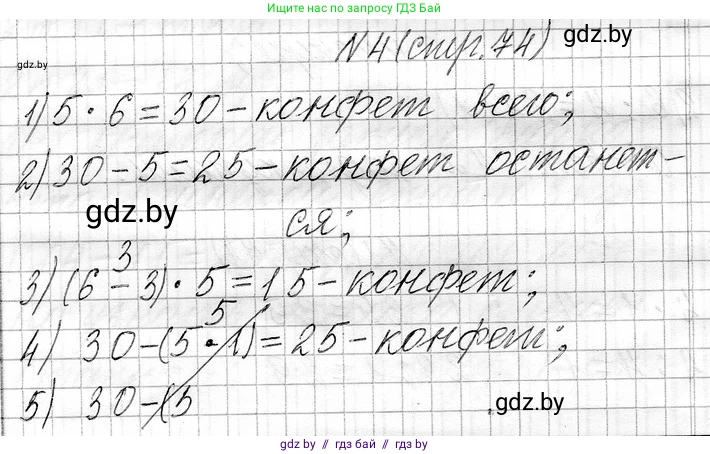 Ищите нас по запросу ГДЗ Бай
gdz.by
N4 (стр. 74)
gdz.by
1) 5 · 6 = 30 – конфет всего;
2) 30 – 5 = 25 – конфет останет–
gdz.by
ся;
3
3) (6 – 3) · 5 = 15 – конфет;
5
4) 30 – (5 · 1) = 25 – конфет;
5) 30 – (5
gdz.by
gdz.by // гдз бай // гдз.by